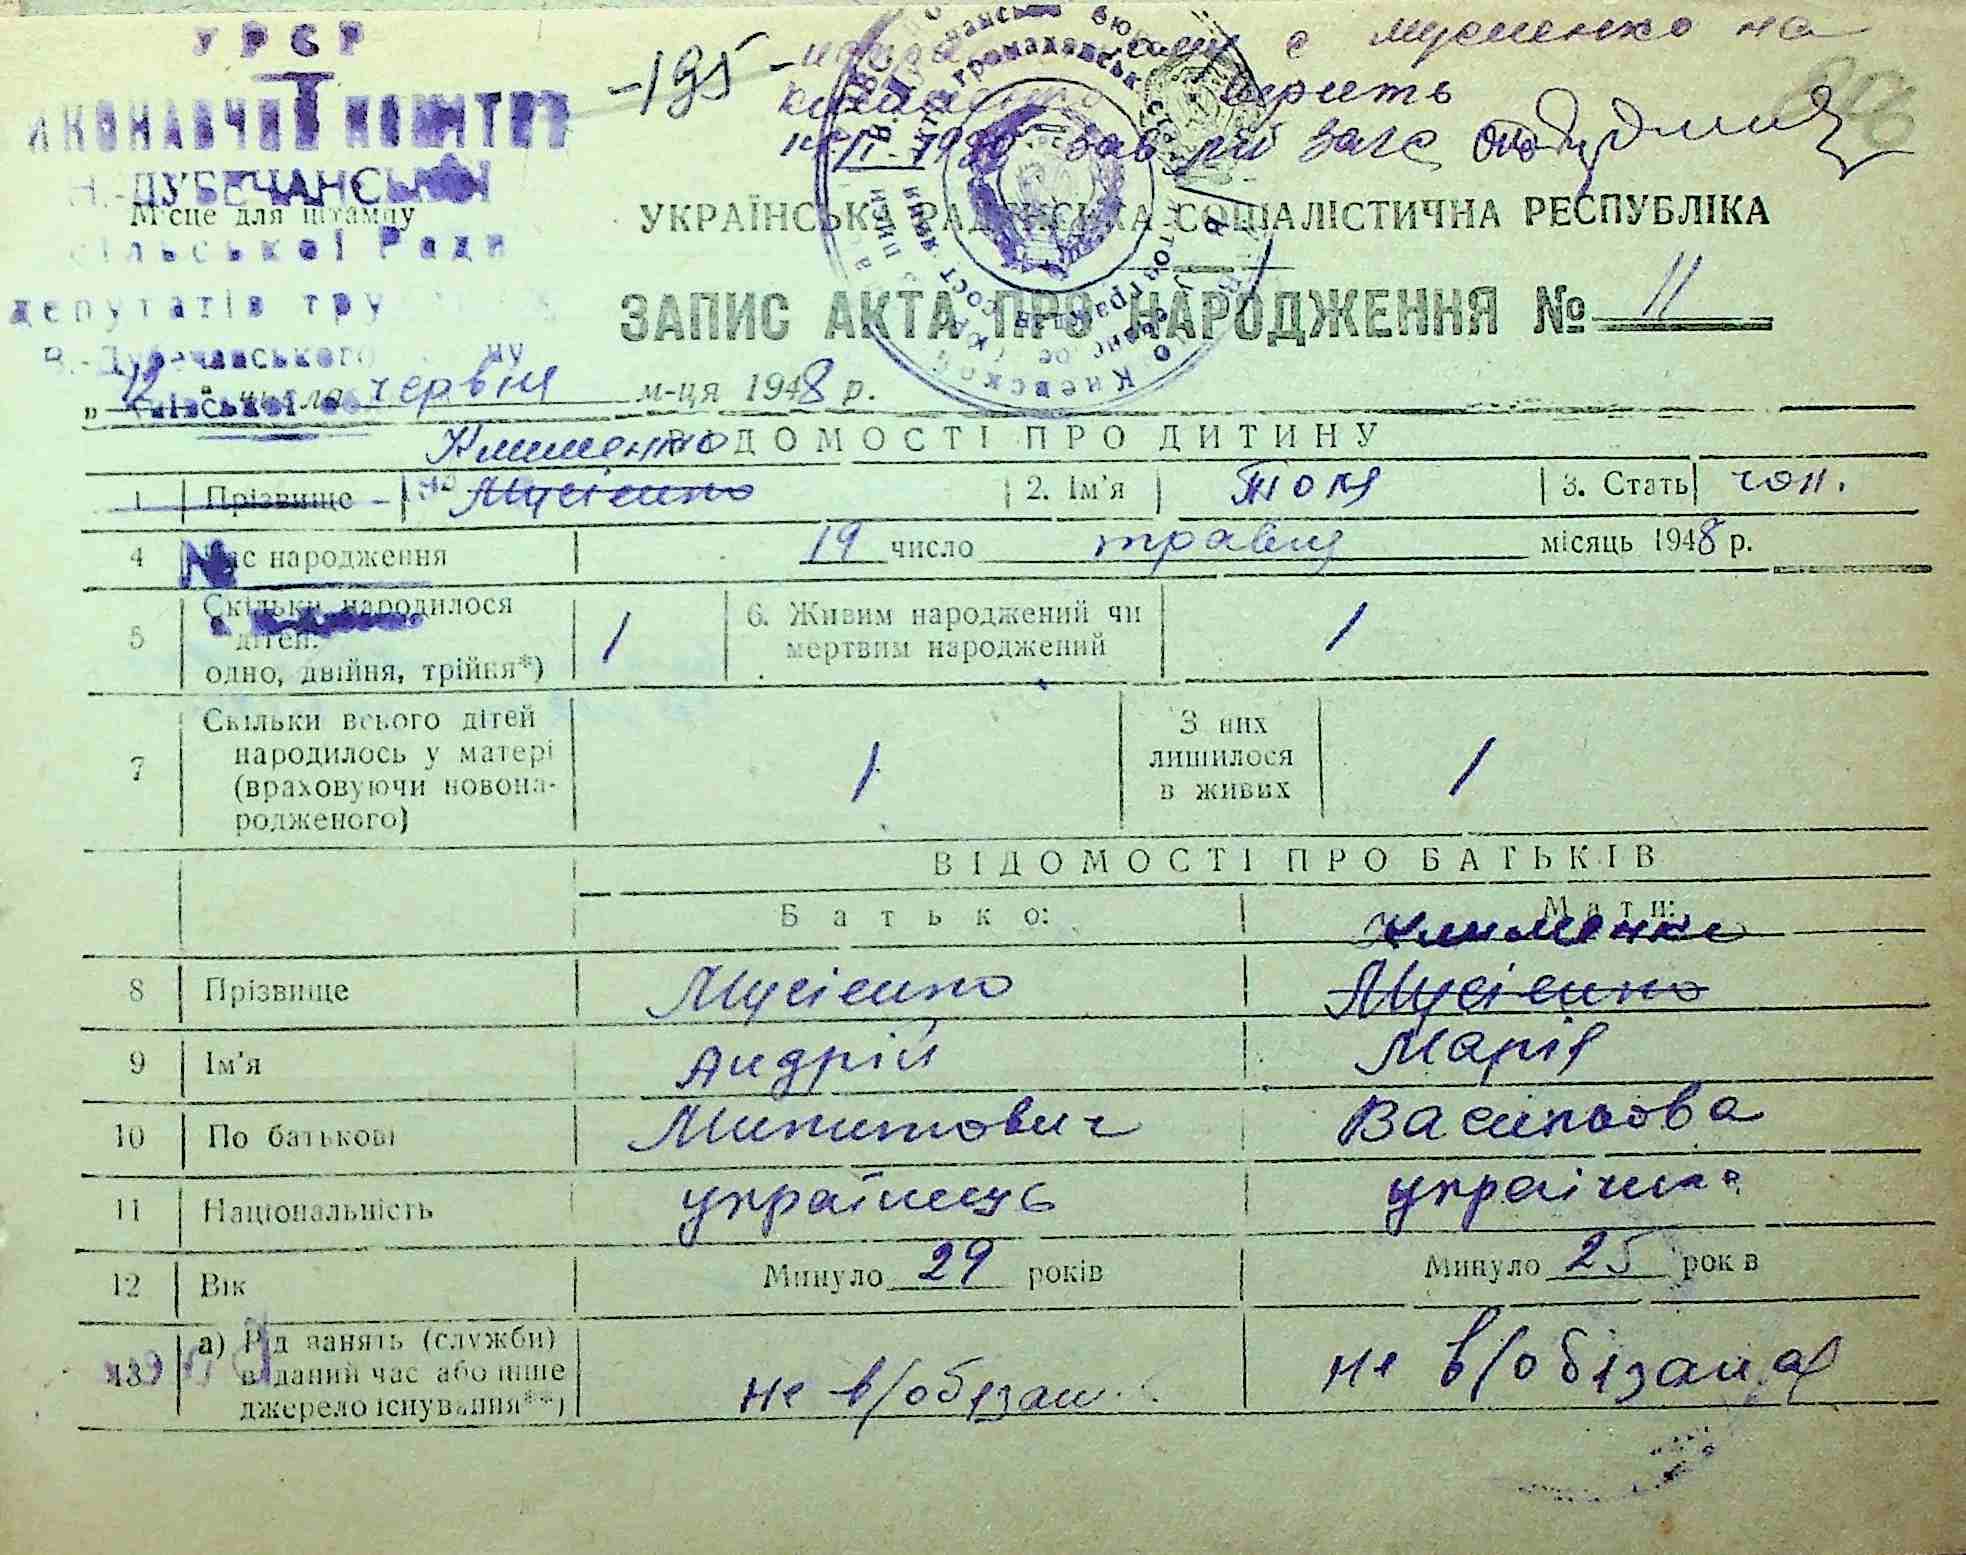 УРСР
ИКОНАВЧИЙ КОМІТЕТ
Н.-ДУБЕЧАНСЬКОЇ
Місце для штампу
сільської Ради
депутатів тру
В.-Дубечанського
Київської
-195-
с мусиенко на
верить
1950 зав рай загс
УКРАЇНСЬКА РАДЯНСЬКА СОЦІАЛІСТИЧНА РЕСПУБЛІКА
ЗАПИС АКТА ПРО НАРОДЖЕННЯ № 11
„ 12 " числа червня м-ця 1948 р.
ВІДОМОСТІ ПРО ДИТИНУ
Клименко
1 Прізвище Мусієнко 2. Ім'я Толя 3. Стать чол.
4 Час народження 19 число травня місяць 1948 р.
5 Скільки народилося дітей: одно, двійня, трійня*) 1 6. Живим народжений чи мертвим народжений 1
7 Скільки всього дітей народилось у матері (враховуючи новонародженого) 1 З них лишилося в живих 1
ВІДОМОСТІ ПРО БАТЬКІВ
Батько: Мати:
Клименко
8 Прізвище Мусієнко Мусієнко
9 Ім'я Андрій Марія
10 По батькові Микитович Васильова
11 Національність українець українка
12 Вік Минуло 29 років Минуло 25 років
13 а) Рід занять (служби) в даний час або інше джерело існування**) не в/обізан не в/обізана